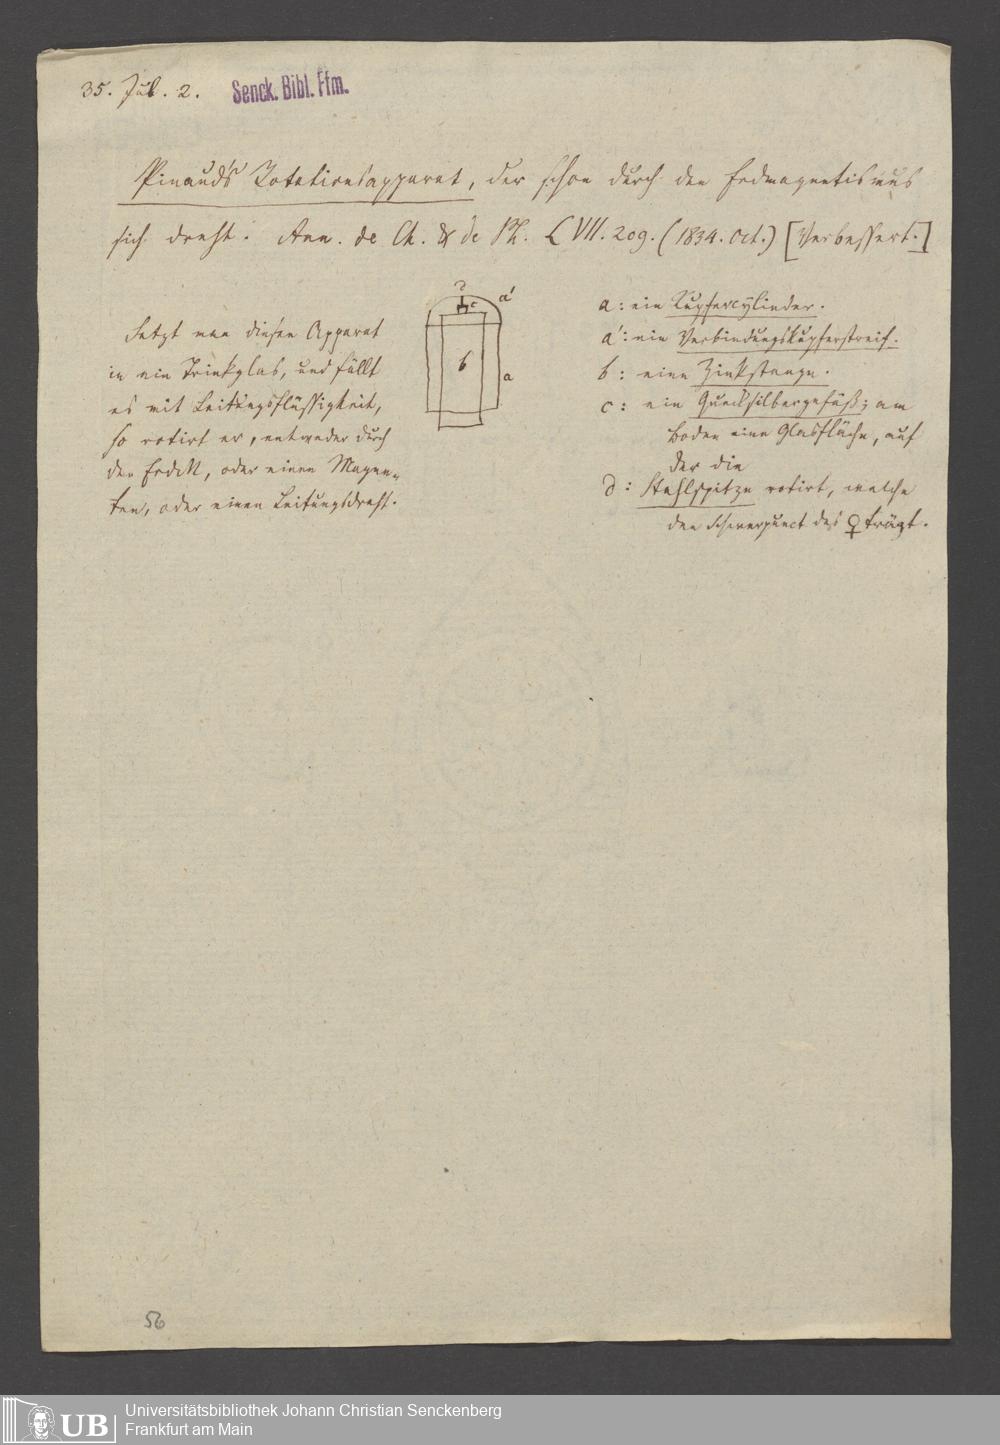 35. Jul. 2.
Senck. Bibl. Ffm.
Pinaud's Rotationsapparat, der schon durch den Erdmagnetismus
sich dreht. Ann. de Ch. & de Ph. LVII. 209. (1834. Oct.) [Verbessert.]
d
c
a'
b
a
Setzt man diesen Apparat
in ein Trinkglas, und füllt
es mit Leitungsflüssigkeit,
so rotirt er, entweder durch
den ErdM, oder einen Magne-
ten, oder einen Leitungsdraht.
a: ein Kupfercylinder.
a': ein Verbindungskupferstreif.
b: eine Zinkstange.
c: ein Quecksilbergefäß; am
Boden eine Glasfläche, auf
der die
d: Stahlspitze rotirt, welche
den Schwerpunct des ♀ trägt.
56
UB
Universitätsbibliothek Johann Christian Senckenberg
Frankfurt am Main